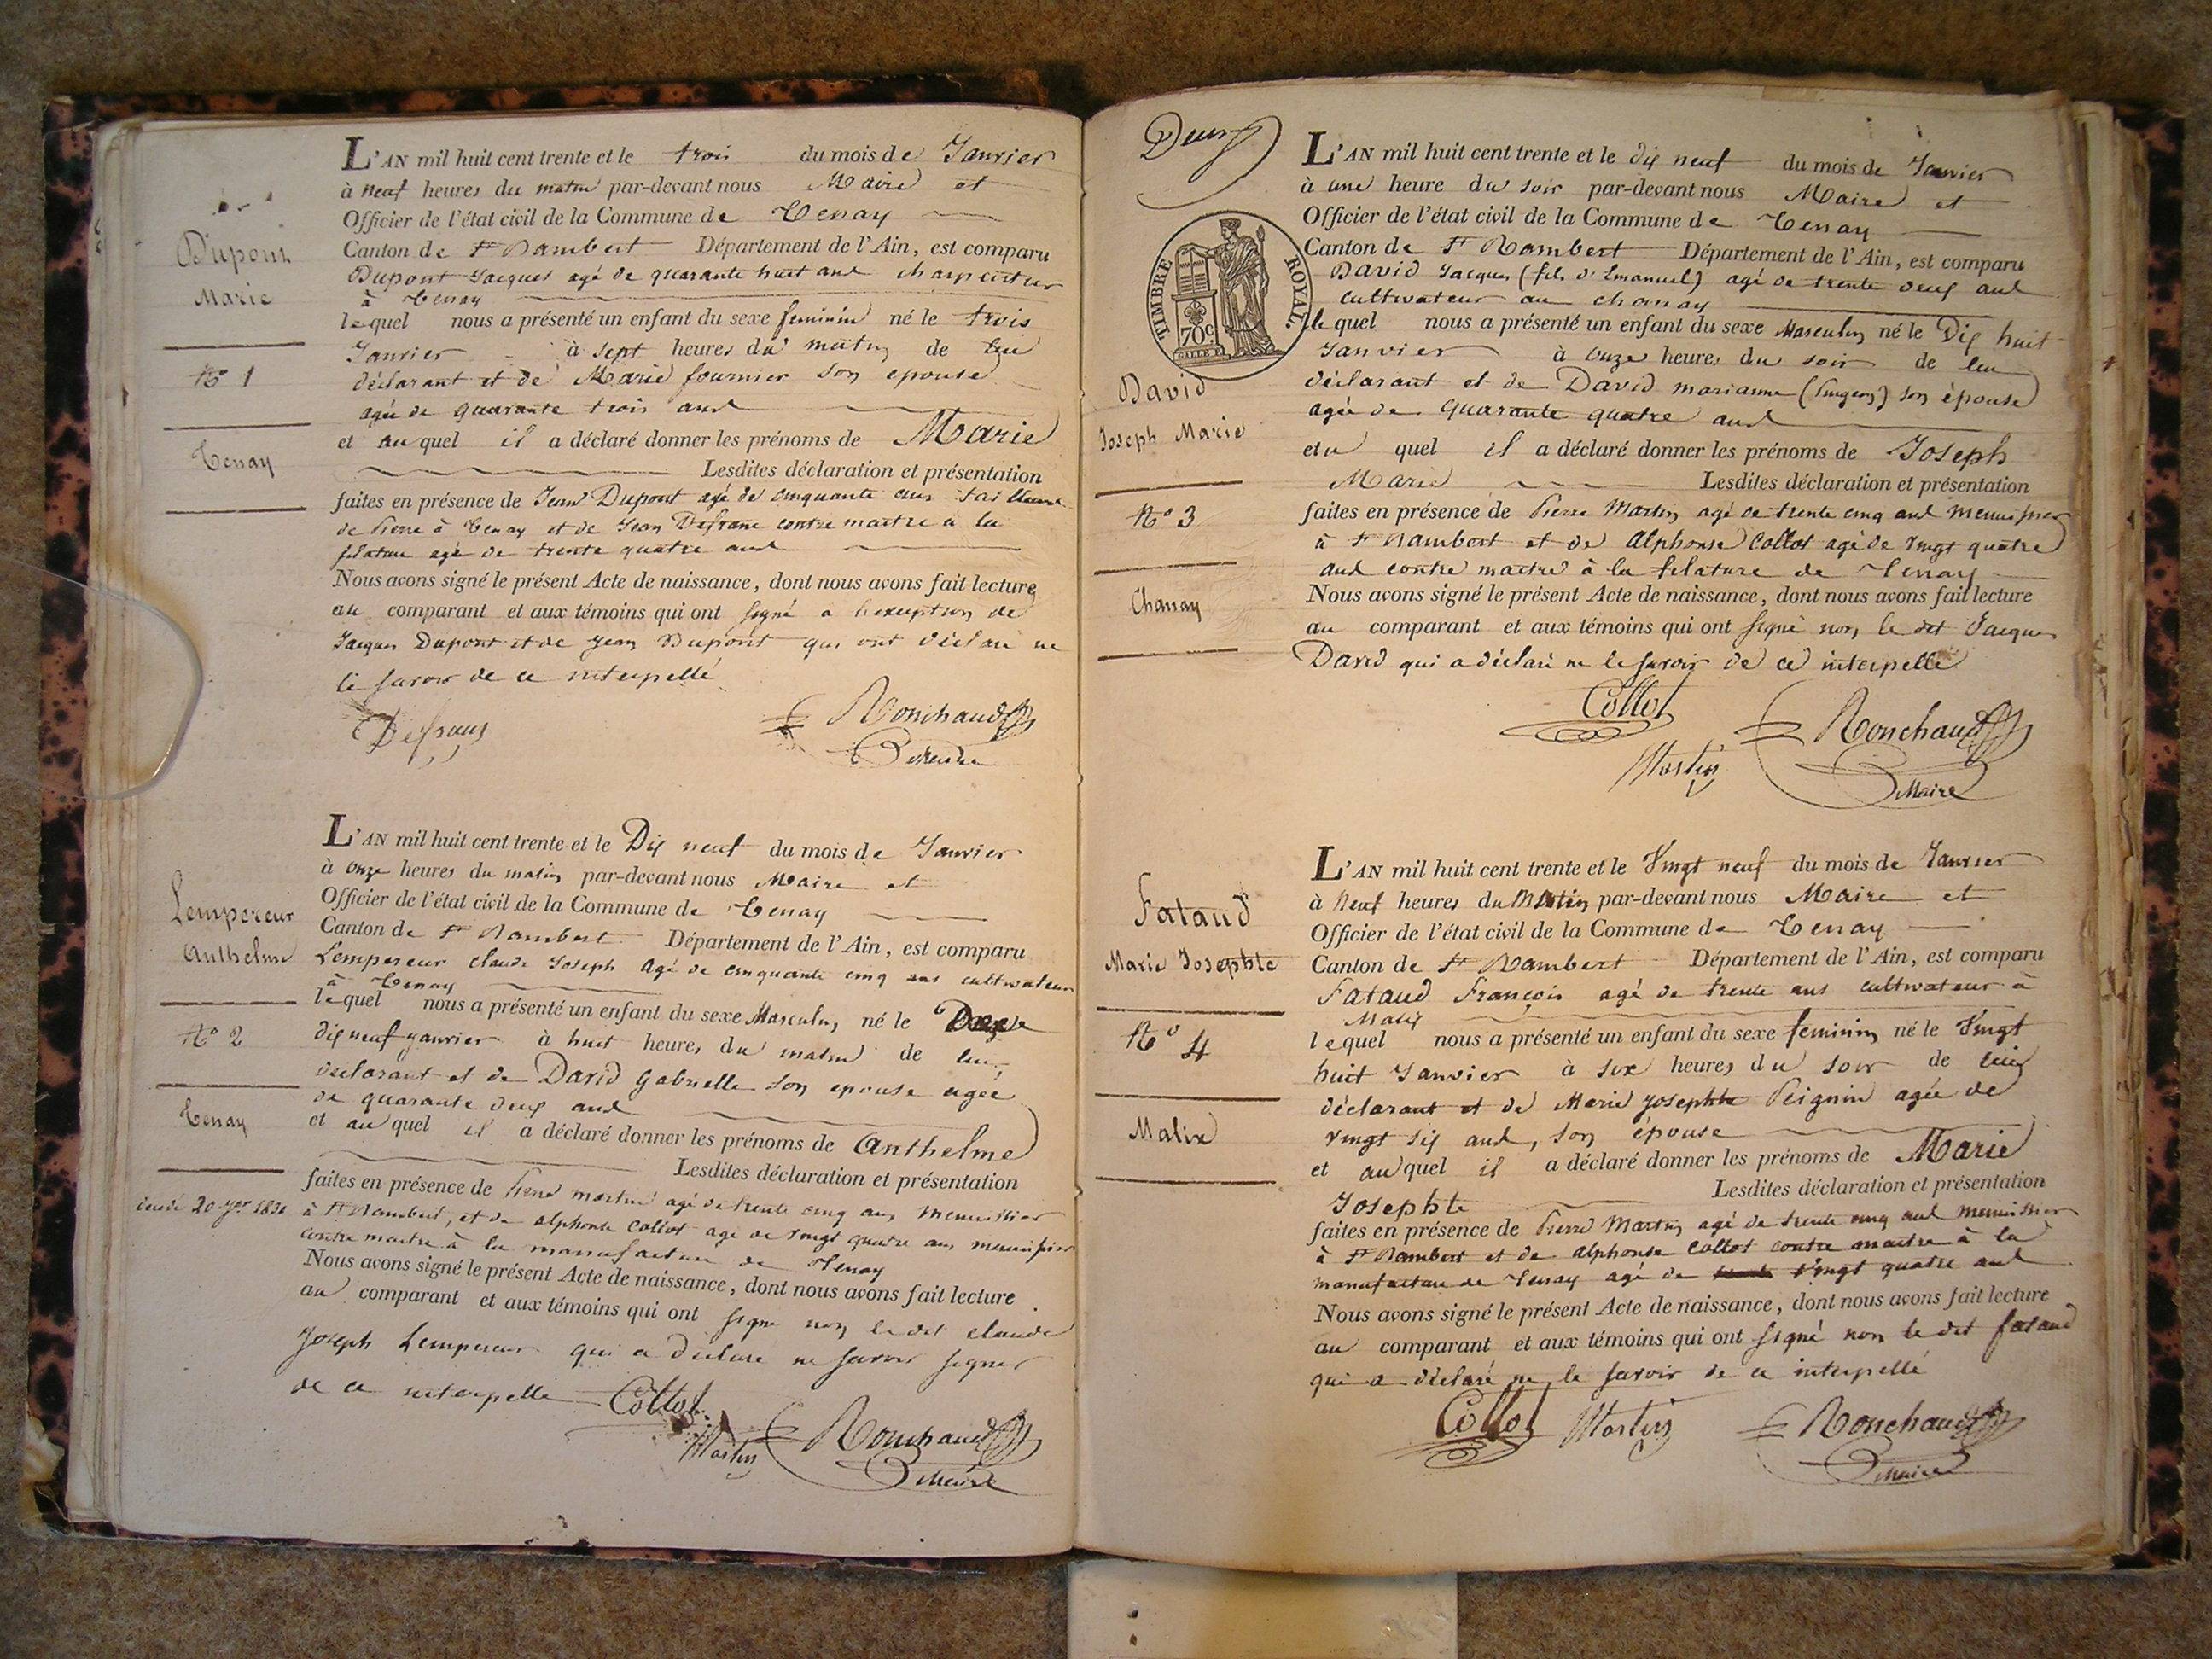 L'AN mil huit cent trente et le trois du mois de Janvier
à neuf heures du matin par-devant nous Maire et
Officier de l'état civil de la Commune de Tenay
Canton de St Rambert Département de l'Ain, est comparu
Dupont Jacques agé de quarante huit ans charpentier
à Tenay
lequel nous a présenté un enfant du sexe feminin né le trois
Janvier à sept heures du matin de lui
déclarant et de Marie fournier son epouse
agée de quarante trois ans
et au quel il a déclaré donner les prénoms de Marie
Lesdites déclaration et présentation
faites en présence de Jean Dupont agé de cinquante ans tailleur
de Pierre à Tenay et de Jean Defrane contre maitre a la
filature agé de trente quatre ans
Nous avons signé le présent Acte de naissance, dont nous avons fait lecture
au comparant et aux témoins qui ont signé a l'exception de
Jacques Dupont et de Jean Dupont qui ont déclaré ne
le savoir de ce interpellé
Ronchaud
Maire
Dupont
Marie
No 1
Tenay
L'AN mil huit cent trente et le Dix neuf du mois de Janvier
à onze heures du matin par-devant nous Maire et
Officier de l'état civil de la Commune de Tenay
Canton de St Rambert Département de l'Ain, est comparu
Lempereur claude Joseph agé de cinquante cinq ans cultivateur
à Tenay
lequel nous a présenté un enfant du sexe Masculin né le
dix neuf janvier à huit heures du matin de lui
declarant et de David Gabrielle son epouse agée
de quarante deux ans
et au quel il a déclaré donner les prénoms de Anthelme
Lesdites déclaration et présentation
faites en présence de Pierre martin agé de trente cinq ans menuisier
à St Rambert, et de alphonse Collot agé de vingt quatre ans menuisier
contre maitre à la manufacture de Tenay
Nous avons signé le présent Acte de naissance, dont nous avons fait lecture
au comparant et aux témoins qui ont signé non le dit claude
Joseph Lempereur qui a déclaré ne savoir signer
de ce interpelle Collot
Martin Ronchaud
Maire
Lempereur
Anthelme
No 2
Tenay
20 1830
Deux
TIMBRE ROYAL.
70c.
L'AN mil huit cent trente et le dix neuf du mois de Janvier
à une heure du soir par-devant nous Maire et
Officier de l'état civil de la Commune de Tenay
Canton de St Rambert Département de l'Ain, est comparu
David Jacques (fils d'Emanuel) agé de trente deux ans
cultivateur au chanay
lequel nous a présenté un enfant du sexe Masculin né le Dix huit
Janvier à onze heures du soir de lui
déclarant et de David marianne son épouse
agée de quarante quatre ans
et u quel il a déclaré donner les prénoms de Joseph
Marie Lesdites déclaration et présentation
faites en présence de Pierre Martin agé de trente cinq ans menuisier
à St Rambert et de Alphonse Collot agé de vingt quatre
ans contre maitre à la filature de Tenay
Nous avons signé le présent Acte de naissance, dont nous avons fait lecture
au comparant et aux témoins qui ont signé non le dit Jacques
David qui a déclaré ne le savoir de ce interpellé
Collot
Martin Ronchaud
Maire
David
Joseph Marie
No 3
Chanay
L'AN mil huit cent trente et le Vingt neuf du mois de Janvier
à Neuf heures du Matin par-devant nous Maire et
Officier de l'état civil de la Commune de Tenay
Canton de St Rambert Département de l'Ain, est comparu
Fataud François agé de trente ans cultivateur à
Malix
lequel nous a présenté un enfant du sexe feminin né le Vingt
huit Janvier à six heures du soir de lui
déclarant et de Marie Josephte Peignin agée de
vingt six ans, son épouse
et au quel il a déclaré donner les prénoms de Marie
Josephte Lesdites déclaration et présentation
faites en présence de Pierre Martin agé de trente cinq ans menuisier
à St Rambert et de alphonse Collot contre maitre à la
manufacture de Tenay agé de vingt quatre ans
Nous avons signé le présent Acte de naissance, dont nous avons fait lecture
au comparant et aux témoins qui ont signé non le dit fataud
qui a déclaré ne le savoir de ce interpellé
Collot Martin Ronchaud
Maire
Fataud
Marie Josephte
No 4
Malix